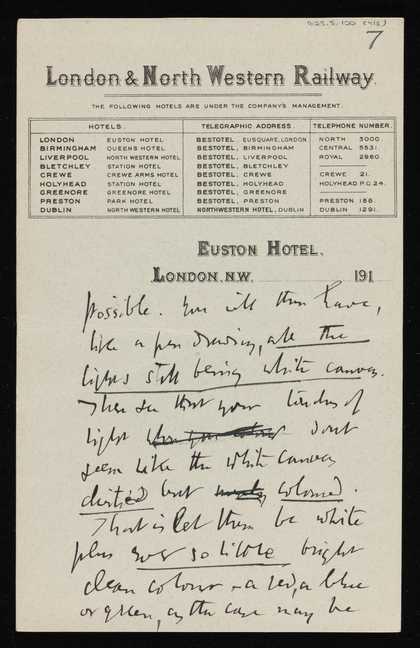 7
London & North Western Railway.
THE FOLLOWING HOTELS ARE UNDER THE COMPANY'S MANAGEMENT.
HOTELS. TELEGRAPHIC ADDRESS. TELEPHONE NUMBER.
LONDON EUSTON HOTEL BESTOTEL EUSQUARE, LONDON NORTH 3000
BIRMINGHAM QUEENS HOTEL BESTOTEL, BIRMINGHAM CENTRAL 5531
LIVERPOOL NORTH WESTERN HOTEL BESTOTEL, LIVERPOOL ROYAL 2960
BLETCHLEY STATION HOTEL BESTOTEL, BLETCHLEY
CREWE CREWE ARMS HOTEL BESTOTEL, CREWE CREWE 21.
HOLYHEAD STATION HOTEL BESTOTEL, HOLYHEAD HOLYHEAD P.O 24.
GREENORE GREENORE HOTEL BESTOTEL, GREENORE
PRESTON PARK HOTEL BESTOTEL, PRESTON PRESTON 156.
DUBLIN NORTH WESTERN HOTEL NORTHWESTERN HOTEL, DUBLIN DUBLIN 1291.
EUSTON HOTEL.
LONDON. N.W. 191
possible. You will then have,
like a pen drawing, all the
lights still being white canvas.
Then see that your of
light dont
seem like the white canvas
dirtied but coloured.
That is let them be white
plus ever so little bright
clean colour - a red, a blue
or green, as the case may be